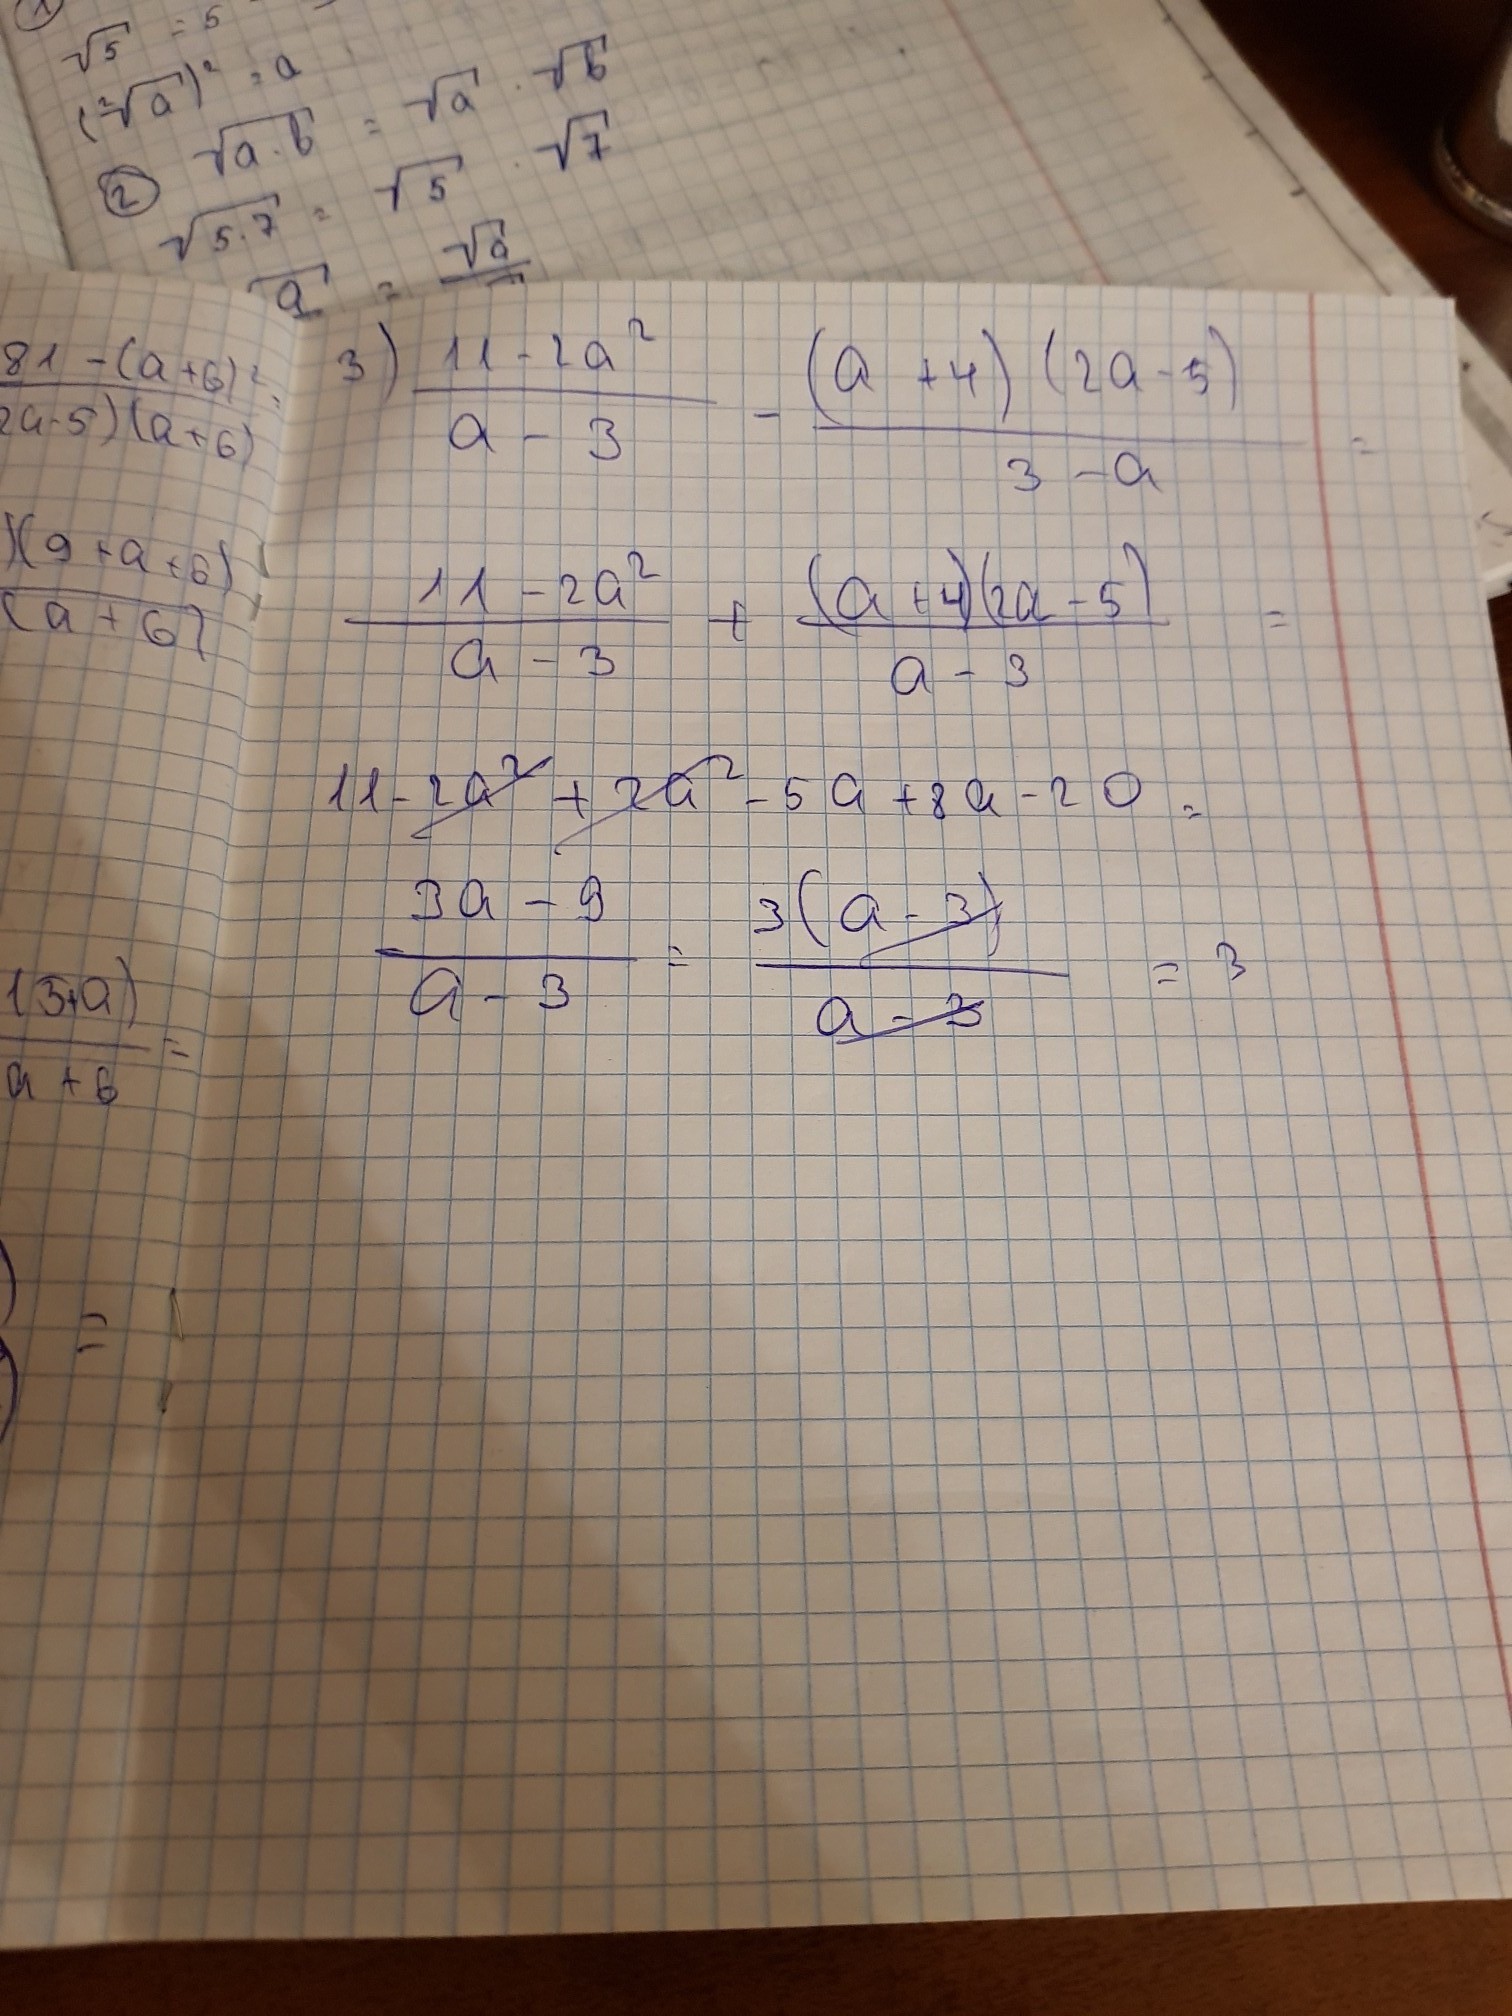 1
√5 = 5
(²√a)² = a
2 √a·b = √a · √b
√5·7 = √5 · √7
√a = √a
81 - (a+6)² =
2a-5)(a+6)
)(9+a+6)
(a+6)
(3+a)
a+6 =
=
3) 11-2a² / a-3 - (a+4)(2a-5) / 3-a =
11-2a² / a-3 + (a+4)(2a-5) / a-3 =
11-2a²+2a²-5a+8a-20 =
3a-9 / a-3 = 3(a-3) / a-3 = 3